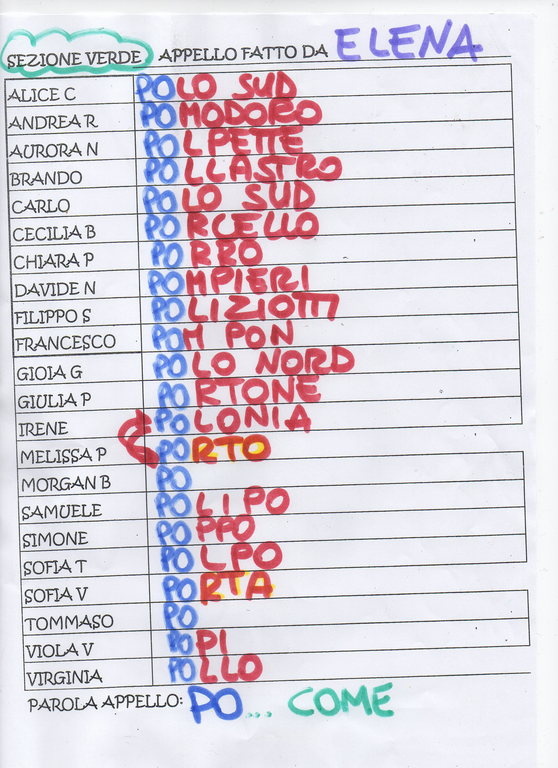 SEZIONE VERDE APPELLO FATTO DA ELENA
ALICE C POLO SUD
ANDREA R POMODORO
AURORA N POLPETTE
BRANDO POLLASTRO
CARLO POLO SUD
CECILIA B PORCELLO
CHIARA P PORRO
DAVIDE N POMPIERI
FILIPPO S POLIZIOTTI
FRANCESCO POM PON
GIOIA G POLO NORD
GIULIA P PORTONE
IRENE POLONIA
MELISSA P PORTO
MORGAN B PO
SAMUELE POLIPO
SIMONE POPPO
SOFIA T POLPO
SOFIA V PORTA
TOMMASO PO
VIOLA V POPI
VIRGINIA POLLO
PAROLA APPELLO: PO... COME